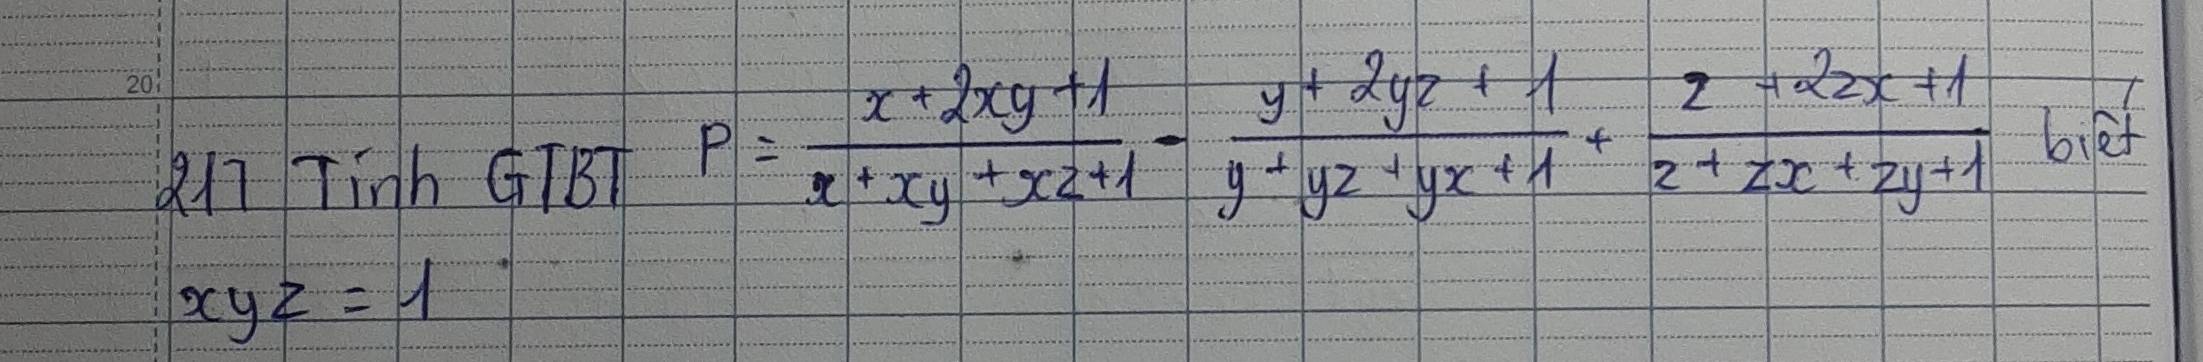 20
217 Tính GTBT P = \frac{x + 2xy + 1}{x + xy + xz + 1} - \frac{y + 2yz + 1}{y + yz + yx + 1} + \frac{z + 2zx + 1}{z + zx + zy + 1} biết
xyz = 1